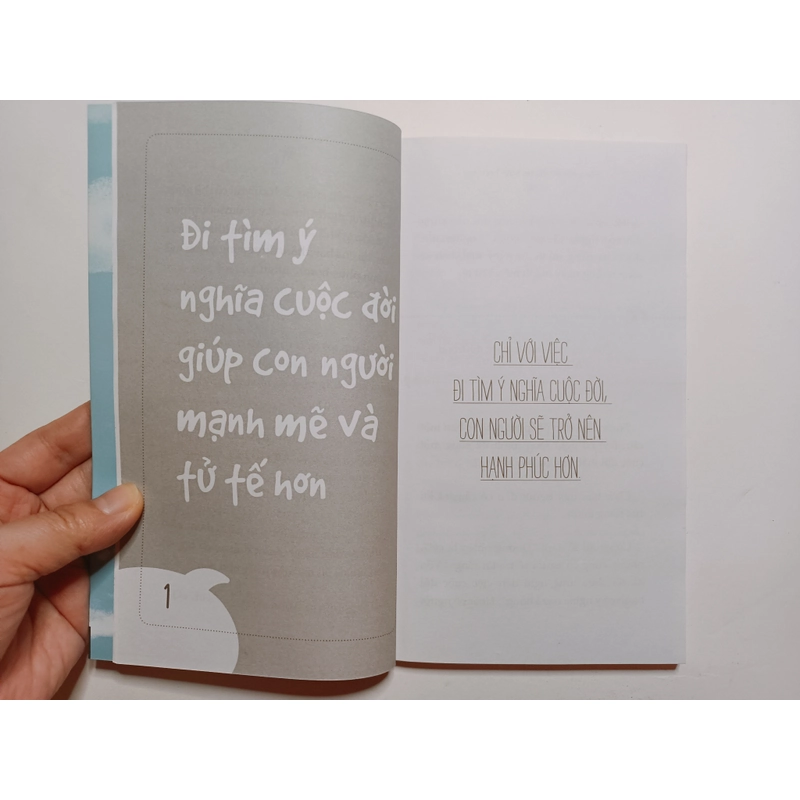 Đi tìm ý
nghĩa cuộc đời
giúp con người
mạnh mẽ và
tử tế hơn
1
CHỈ VỚI VIỆC
ĐI TÌM Ý NGHĨA CUỘC ĐỜI,
CON NGƯỜI SẼ TRỞ NÊN
HẠNH PHÚC HƠN